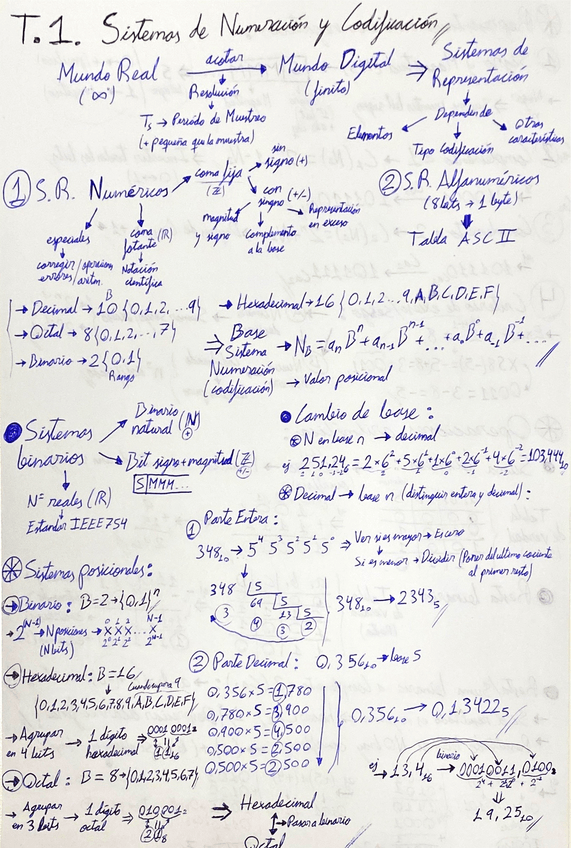 T.1. Sistemas de Numeración y Codificación
Mundo Real acotar → Mundo Digital ⇒ Sistemas de Representación
("∞") Resolución (finito)
Ts → Periodo de Muestreo
(+ pequeña que la muestra)
Dependiendo
Elementos Tipo Codificación Otras características
① S.R. Numéricos → coma fija (ℤ)
sin signo (+)
con signo (+/-)
magnitud y signo
complemento a la base
Representación en exceso
especiales
corregir errores/operaciones aritm.
coma flotante (ℝ)
Notación científica
② S.R. Alfanuméricos
(8 bits → 1 byte)
Tabla ASCII
→ Decimal → 10 {0,1,2,...9} → Hexadecimal → 16 {0,1,2...9,A,B,C,D,E,F}
→ Octal → 8 {0,1,2,...,7}
→ Binario → 2 {0,1}
Rango
⇒ Base Sistema Numeración (codificación)
→ N_B = aₙBⁿ + aₙ₋₁Bⁿ⁻¹ + ... + a₀B⁰ + a₋₁B⁻¹ + ...
→ Valor posicional
Sistemas binarios
Binario natural (ℕ) +
Bit signo + magnitud (ℤ) +/-
S|MMM...
Nº reales (ℝ)
Estandar IEEE754
Cambio de base:
N en base n → decimal
ej 251,24₆ = 2×6² + 5×6¹ + 1×6⁰ + 2×6⁻¹ + 4×6⁻² = 103,444₁₀
Decimal → base n (distinguir entero y decimal):
① Parte Entera:
348₁₀ → 5⁴ 5³ 5² 5¹ 5⁰ ⇒ Ver si es mayor → Es cero
Si es menor → Dividir (Poner del ultimo cociente al primer resto)
348 |5
3 69 |5
4 13 |5
3 2
348₁₀ → 2343₅
Sistemas posicionales:
→ Binario: B=2 → {0,1}ⁿ
→ 2^(N-1) → N posiciones → X X X ... X
(N bits) 2⁰ 2¹ 2² 2^N-1
→ Hexadecimal: B=16
Cuando supera 9
{0,1,2,3,4,5,6,7,8,9,A,B,C,D,E,F}
→ Agrupar en 4 bits → 1 digito hexadecimal → 0001 0001₂
→ Octal: B = 8 → {0,1,2,3,4,5,6,7}
→ Agrupar en 3 bits → 1 digito octal → 010 001₂
② Parte Decimal: 0,356₁₀ → base 5
0,356×5 = 1,780
0,780×5 = 3,900
0,900×5 = 4,500
0,500×5 = 2,500
0,500×5 = 2,500
0,356₁₀ → 0,13422₅
⇒ Hexadecimal
Pasar a binario
Octal
ej → 13,4₁₆ binario → 00010011,0100₂
19,25₁₀